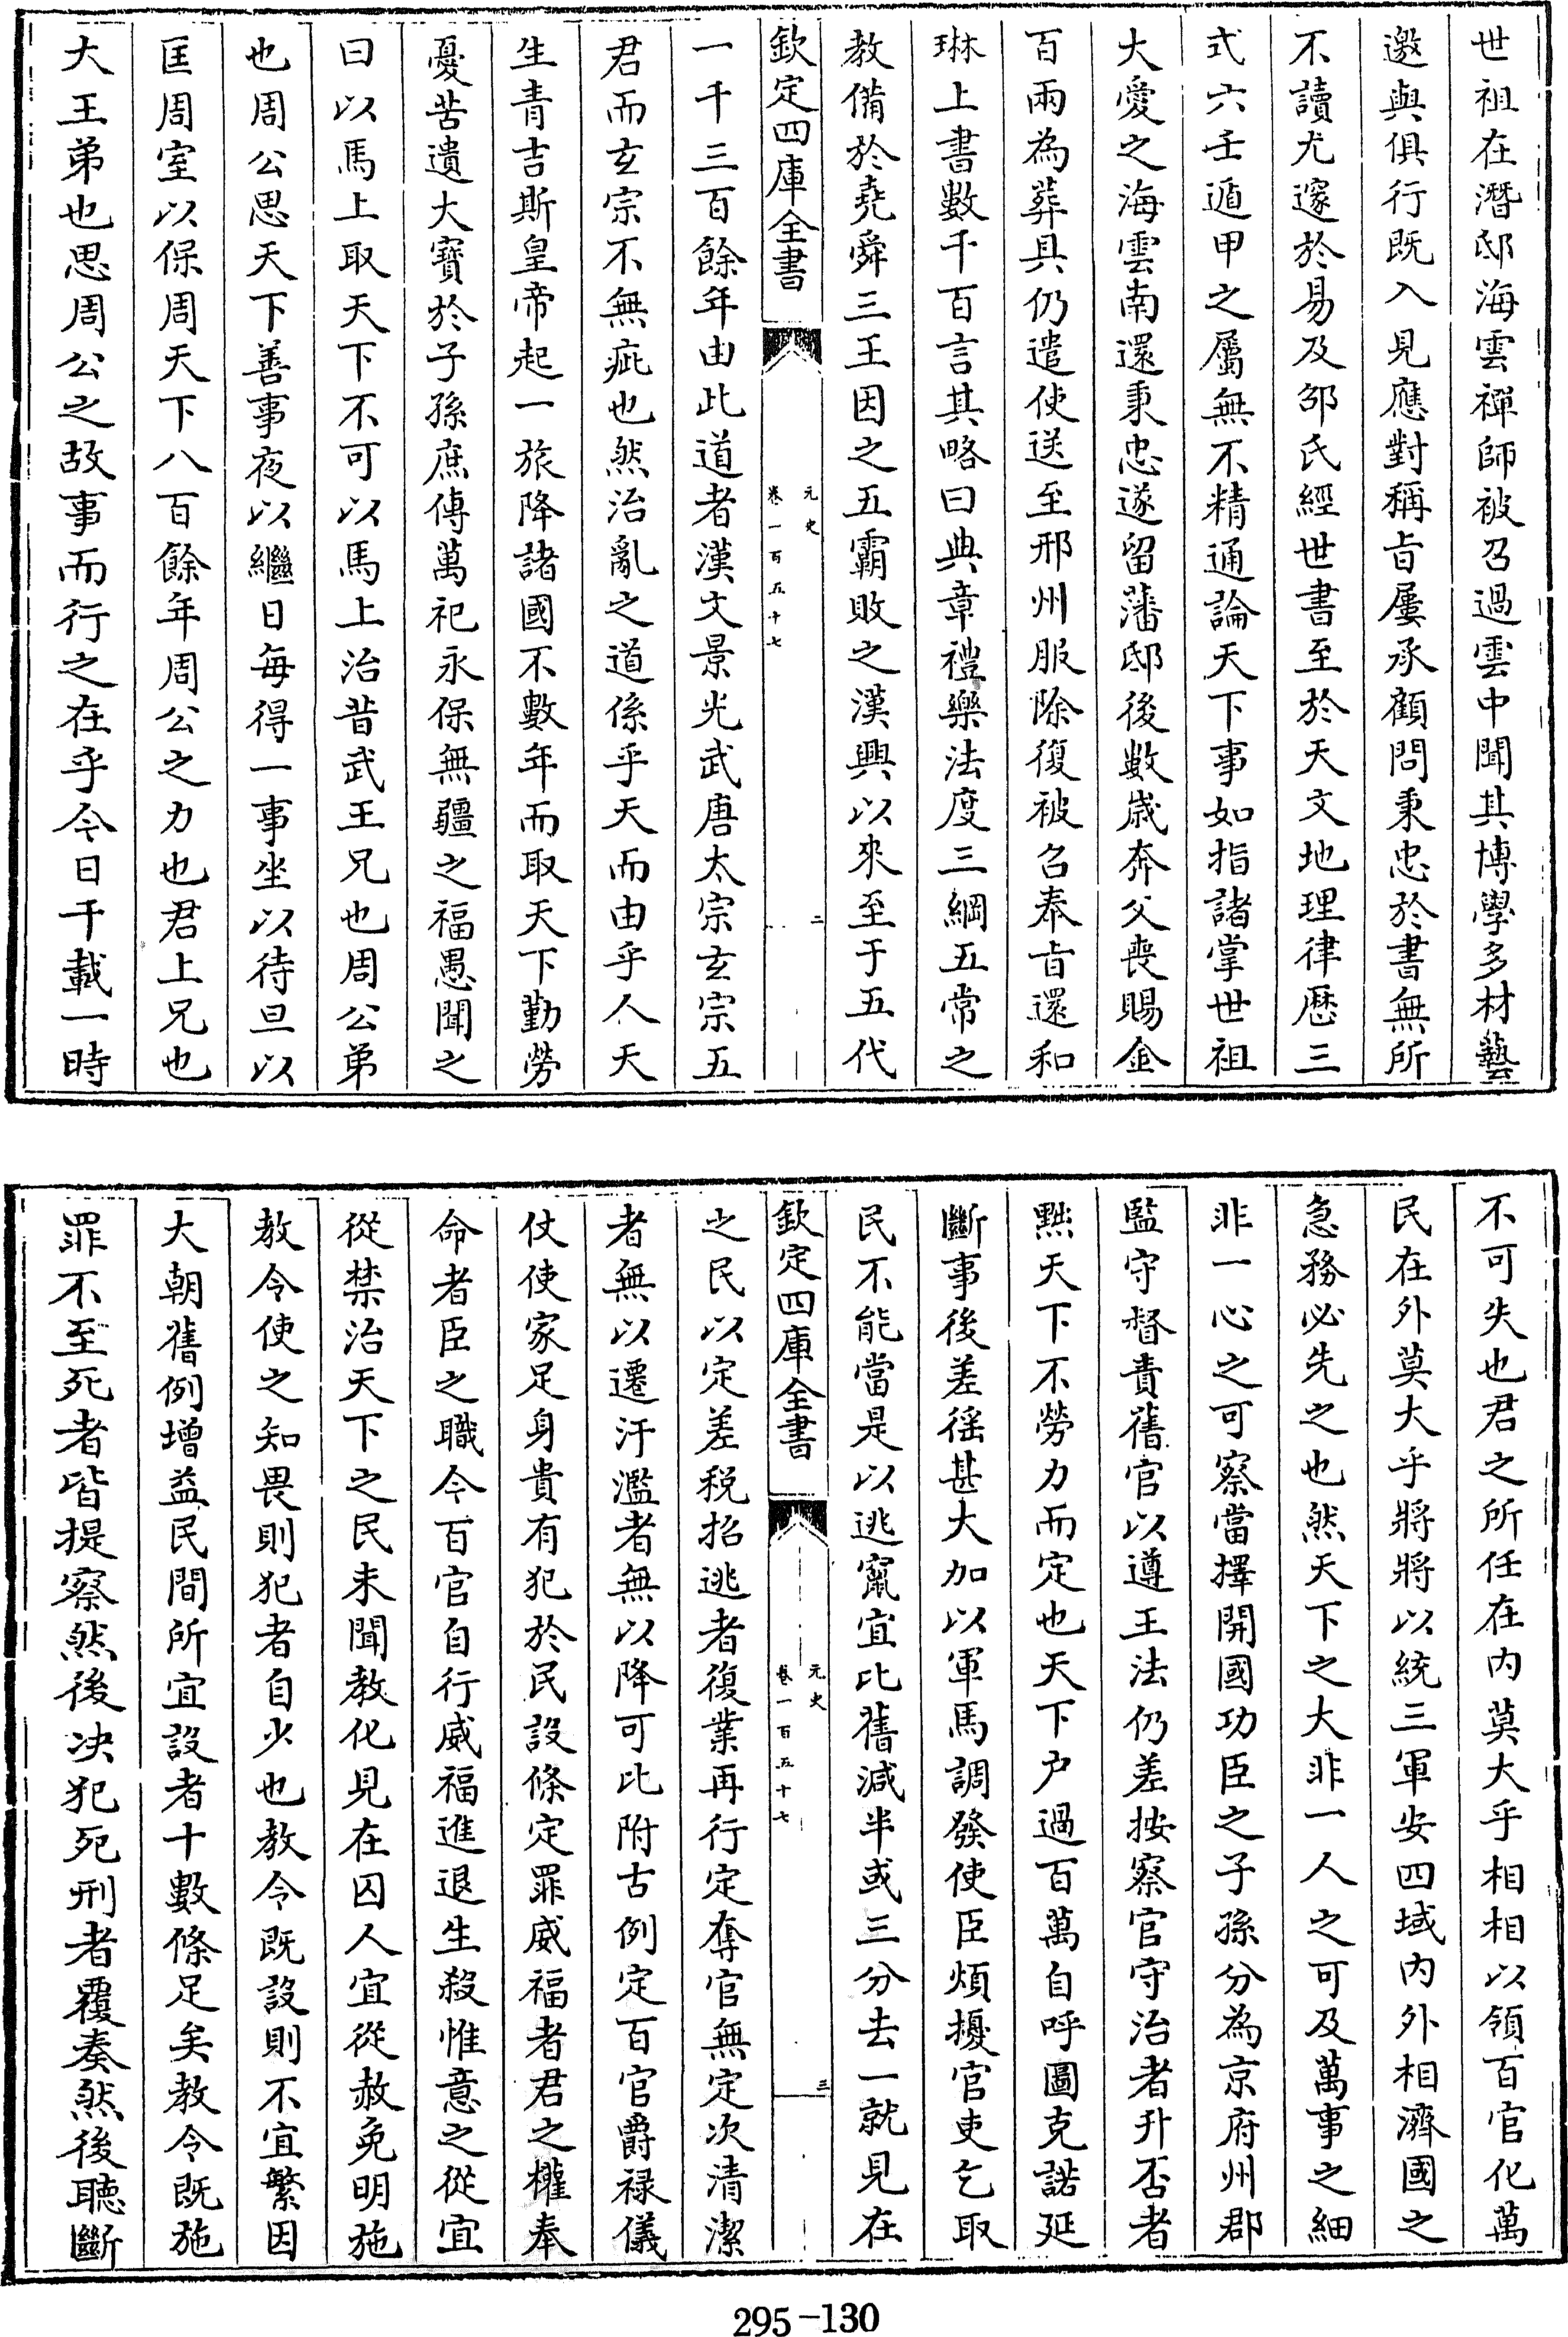 世祖在潛邸海雲禪師被召過雲中聞其博學多材藝
邀與俱行既入見應對稱旨屢承顧問秉忠於書無所
不讀尤邃於易及邵氏經世書至於天文地理律歷三
式六壬遁甲之屬無不精通論天下事如指諸掌世祖
大愛之海雲南還秉忠遂留藩邸後數歲奔父喪賜金
百兩為葬具仍遣使送至邢州服除復被召奉旨還和
琳上書數千百言其略曰典章禮樂法度三綱五常之
教備於堯舜三王因之五霸敗之漢興以來至于五代
欽定四庫全書
元史
卷一百五十七
二
一千三百餘年由此道者漢文景光武唐太宗玄宗五
君而玄宗不無疵也然治亂之道係乎天而由乎人天
生青吉斯皇帝起一旅降諸國不數年而取天下勤勞
憂苦遺大寶於子孫庶傳萬祀永保無疆之福愚聞之
曰以馬上取天下不可以馬上治昔武王兄也周公弟
也周公思天下善事夜以繼日每得一事坐以待旦以
匡周室以保周天下八百餘年周公之力也君上兄也
大王弟也思周公之故事而行之在乎今日千載一時
不可失也君之所任在內莫大乎相相以領百官化萬
民在外莫大乎將將以統三軍安四域內外相濟國之
急務必先之也然天下之大非一人之可及萬事之細
非一心之可察當擇開國功臣之子孫分為京府州郡
監守督責舊官以遵王法仍差按察官守治者升否者
黜天下不勞力而定也天下户過百萬自呼圖克諾延
斷事後差徭甚大加以軍馬調發使臣煩擾官吏乞取
民不能當是以逃竄宜比舊減半或三分去一就見在
欽定四庫全書
元史
卷一百五十七
三
之民以定差税招逃者復業再行定奪官無定次清潔
者無以遷汙濫者無以降可比附古例定百官爵禄儀
仗使家足身貴有犯於民設條定罪威福者君之權奉
命者臣之職今百官自行威福進退生殺惟意之從宜
從禁治天下之民未聞教化見在囚人宜從赦免明施
教令使之知畏則犯者自少也教令既設則不宜繁因
大朝舊例增益民間所宜設者十數條足矣教令既施
罪不至死者皆提察然後决犯死刑者覆奏然後聽斷
295-130